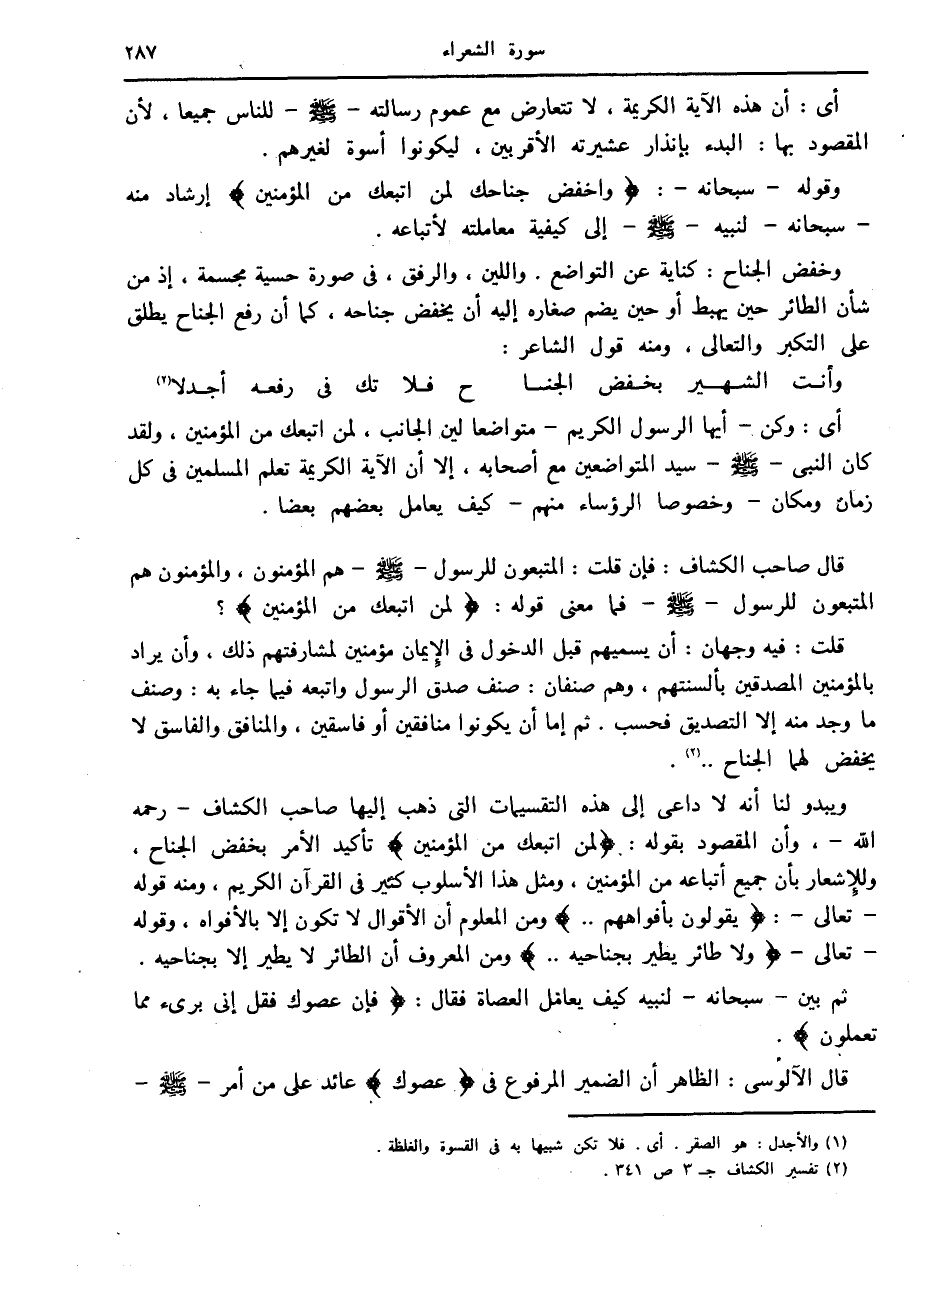 سورة الشعراء ٢٨٧
أى : أن هذه الآية الكريمة ، لا تتعارض مع عموم رسالته - ﷺ - للناس جميعا ، لأن
المقصود بها : البدء بإنذار عشيرته الأقربين ، ليكونوا أسوة لغيرهم .
وقوله - سبحانه - : ﴿ واخفض جناحك لمن اتبعك من المؤمنين ﴾ إرشاد منه
- سبحانه - لنبيه - ﷺ - إلى كيفية معاملته لأتباعه .
وخفض الجناح : كناية عن التواضع . واللين ، والرفق ، فى صورة حسية مجسمة ، إذ من
شأن الطائر حين يهبط أو حين يضم صغاره إليه أن يخفض جناحه ، كما أن رفع الجناح يطلق
على التكبر والتعالى ، ومنه قول الشاعر :
وأنت الشهير بخفض الجنا ح فلا تك فى رفعه أجدلا(٢)
أى : وكن - أيها الرسول الكريم - متواضعا لين الجانب ، لمن اتبعك من المؤمنين ، ولقد
كان النبى - ﷺ - سيد المتواضعين مع أصحابه ، إلا أن الآية الكريمة تعلم المسلمين فى كل
زمان ومكان - وخصوصا الرؤساء منهم - كيف يعامل بعضهم بعضا .
قال صاحب الكشاف : فإن قلت : المتبعون للرسول - ﷺ - هم المؤمنون ، والمؤمنون هم
المتبعون للرسول - ﷺ - فما معنى قوله : ﴿ لمن اتبعك من المؤمنين ﴾ ؟
قلت : فيه وجهان : أن يسميهم قبل الدخول فى الإيمان مؤمنين لمشارفتهم ذلك ، وأن يراد
بالمؤمنين المصدقين بألسنتهم ، وهم صنفان : صنف صدق الرسول واتبعه فيما جاء به : وصنف
ما وجد منه إلا التصديق فحسب . ثم إما أن يكونوا منافقين أو فاسقين ، والمنافق والفاسق لا
يخفض لهما الجناح ..(٢) .
ويبدو لنا أنه لا داعى إلى هذه التقسيمات التى ذهب إليها صاحب الكشاف - رحمه
الله - ، وأن المقصود بقوله : ﴿لمن اتبعك من المؤمنين ﴾ تأكيد الأمر بخفض الجناح ،
وللإشعار بأن جميع أتباعه من المؤمنين ، ومثل هذا الأسلوب كثير فى القرآن الكريم ، ومنه قوله
- تعالى - : ﴿ يقولون بأفواههم .. ﴾ ومن المعلوم أن الأقوال لا تكون إلا بالأفواه ، وقوله
- تعالى - ﴿ ولا طائر يطير بجناحيه .. ﴾ ومن المعروف أن الطائر لا يطير إلا بجناحيه .
ثم بين - سبحانه - لنبيه كيف يعامل العصاة فقال : ﴿ فإن عصوك فقل إنى برىء مما
تعملون ﴾ .
قال الآلوسى : الظاهر أن الضمير المرفوع فى ﴿ عصوك ﴾ عائد على من أمر - ﷺ -
(١) والأجدل : هو الصقر . أى . فلا تكن شبيها به فى القسوة والغلظة .
(٢) تفسير الكشاف جـ ٣ ص ٣٤١ .